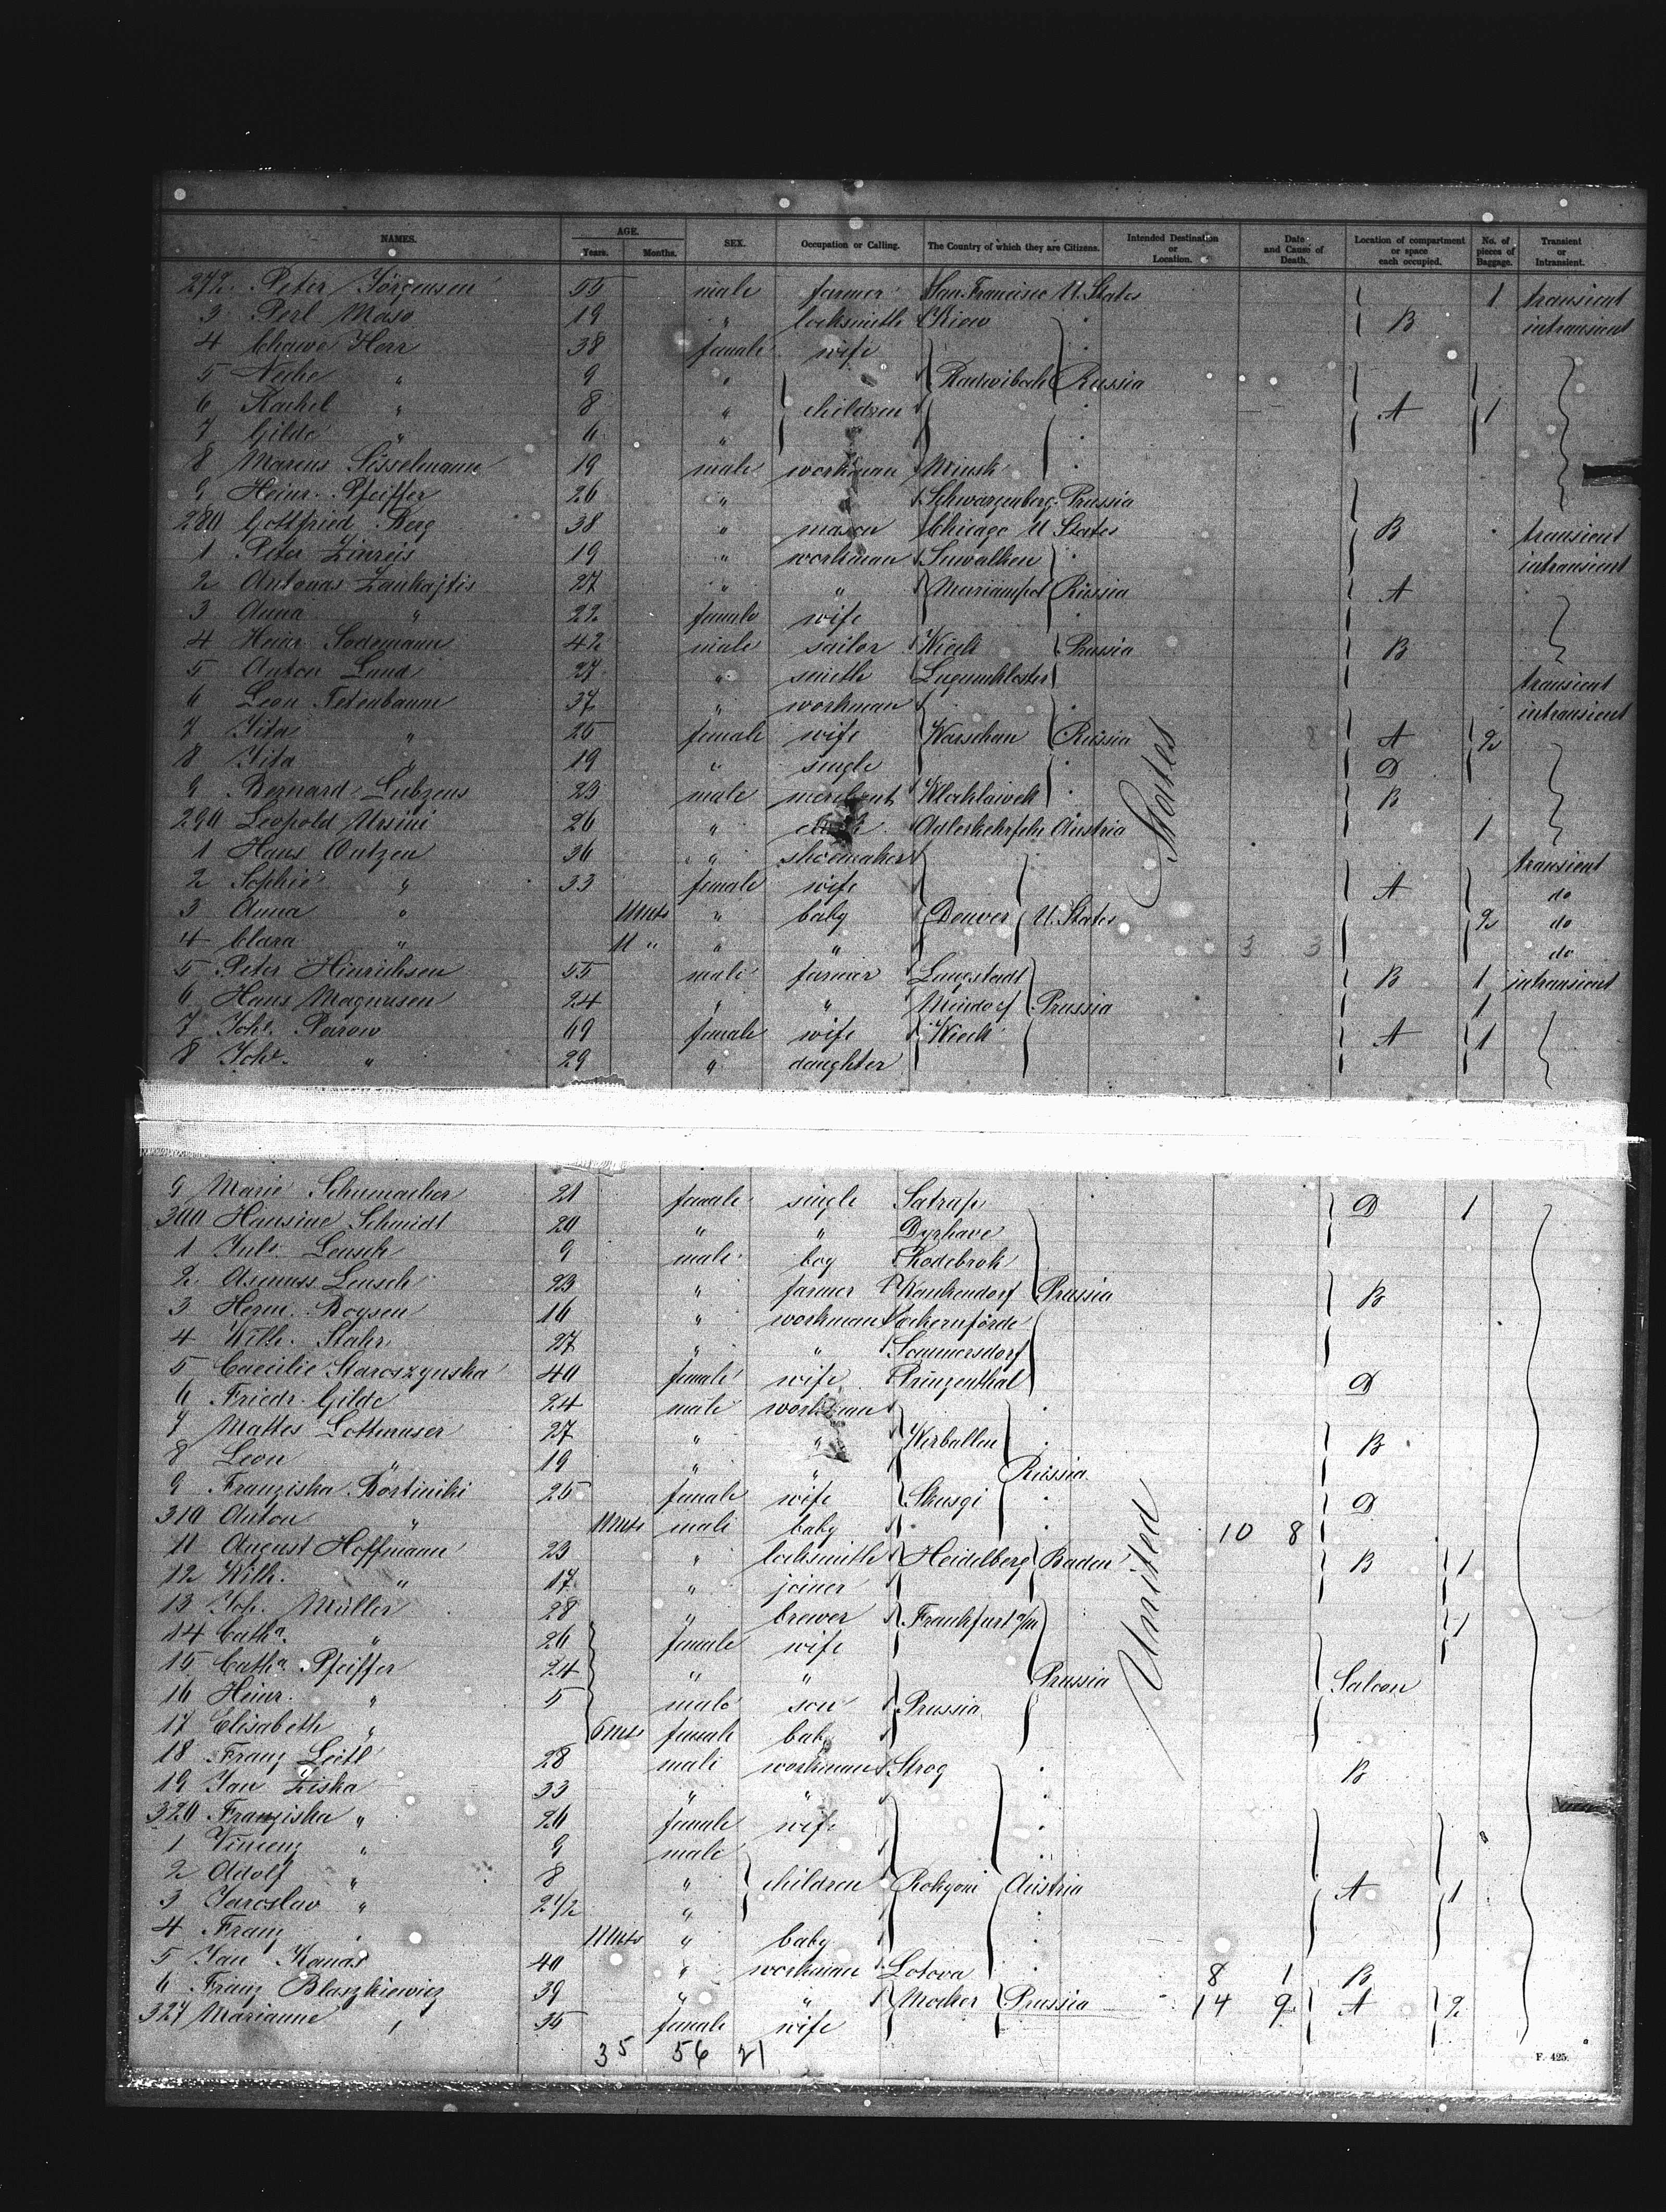 NAMES. AGE. Years. Months. SEX. Occupation or Calling. The Country of which they are Citizens. Intended Destination or Location. Date and Cause of Death. Location of compartment or space each occupied. No. of pieces of Baggage. Transient or Intransient.
272 Peter Jörgensen 55 male farmer San Francisco U. States 1 transient
3 Perl Maso 19 " locksmith Kiew B intransient
4 Chawe Herr 38 female wife
5 Neche " 9 " Russia
6 Rachel " 8 " children A 1
7 Gilde " 6 "
8 Marcus Süsselmann 19 male workman Minsk
9 Heinr. Pfeiffer 26 " " Schwarzenberg Prussia
280 Gottfried Berg 38 " mason Chicago U States B transient
1 Peter Zinreis 19 " workman Suwalken intransient
2 Antonas Zankajtis 27 " " Mariampol Russia A
3 Anna " 22 female wife
4 Heinr. Sodemann 42 male sailor Wieck Prussia B
5 Anton Lund 27 " smith Lugumkloster transient
6 Leon Tetenbaum 37 " workman intransient
7 Jita " 25 female wife Warschau Russia A 2
8 Jita " 19 " single D
9 Bernard Lubzens 23 male merchant Wloklawek B
290 Leopold Ursini 26 " Austria 1
1 Hans Outzen 36 " shoemaker transient
2 Sophie " 33 female wife A do
3 Anna " 11 mts " baby Denver U. States 2 do
4 Clara " 11 " " " 3 3 do
5 Peter Hinrichsen 55 male farmer Langstedt B 1 intransient
6 Hans Magnusen 24 " " Prussia 1
7 Johe. Parow 69 female wife Wieck A 1
8 Johe. " 29 " daughter
9 Marie Schumacher 21 female single Satrup D 1
300 Hansine Schmidt 20 " " Dyrhave
1 Juls. Lensch 9 male boy
2 Asmuss Lensch 23 " farmer Prussia B
3 Herm. Boysen 16 " workman Eckernförde
4 Wilh. Stahr 27 " " Sommersdorf
5 Caecilie Staroszynska 40 female wife Prinzenthal D
6 Friedr. Gilde 24 male workman
7 Mattes Lottmuser 27 " " Wirballen B
8 Leon " 19 " " Russia
9 Franziska Bortiniki 25 female wife D
310 Anton " 11 mts male baby 10 8
11 August Hoffmann 23 " locksmith Heidelberg Baden B 1
12 Wilh. " 17 " joiner
13 Joh. Müller 28 " brewer Frankfurt a/M 1
14 Catha. " 26 female wife
15 Catha. Pfeiffer 24 " " Prussia Saloon
16 Heinr. " 5 male son Prussia
17 Elisabeth " 6 mts female baby
18 Franz Leitl 28 male workman Strog B
19 Jan Ziska 33 " "
320 Franziska " 26 female wife
1 Vincenz " 9 male
2 Adolf " 8 " children Austria A 1
3 Jaroslav " 2 1/2 "
4 Franz " 11 mts " baby
5 Jan Kanas 40 " workman Lotova 8 1 B
6 Franz Blaszkiewicz 39 " " Mocker Prussia 14 9 A 2
327 Marianne " 35 female wife
United States
35 56 21
F. 425.